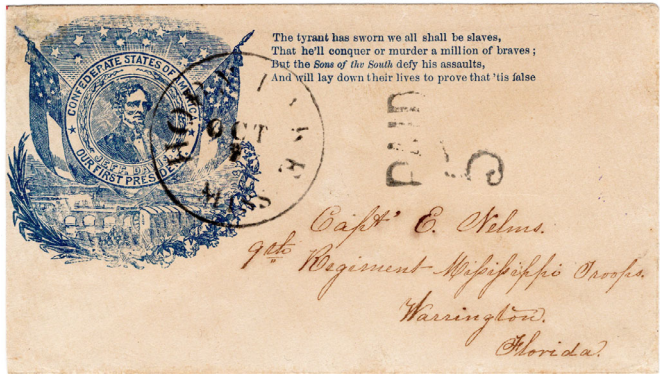 The tyrant has sworn we all shall be slaves,
That he'll conquer or murder a million of braves;
But the Sons of the South defy his assaults,
And will lay down their lives to prove that 'tis false
CONFEDERATE STATES OF AMERICA
JEFF. DAVIS
OUR FIRST PRESIDENT
OCT
7
MISS
PAID
5
Capt' E. Nelms.
9th Regiment Mississippi Troops.
Warrington.
Florida.